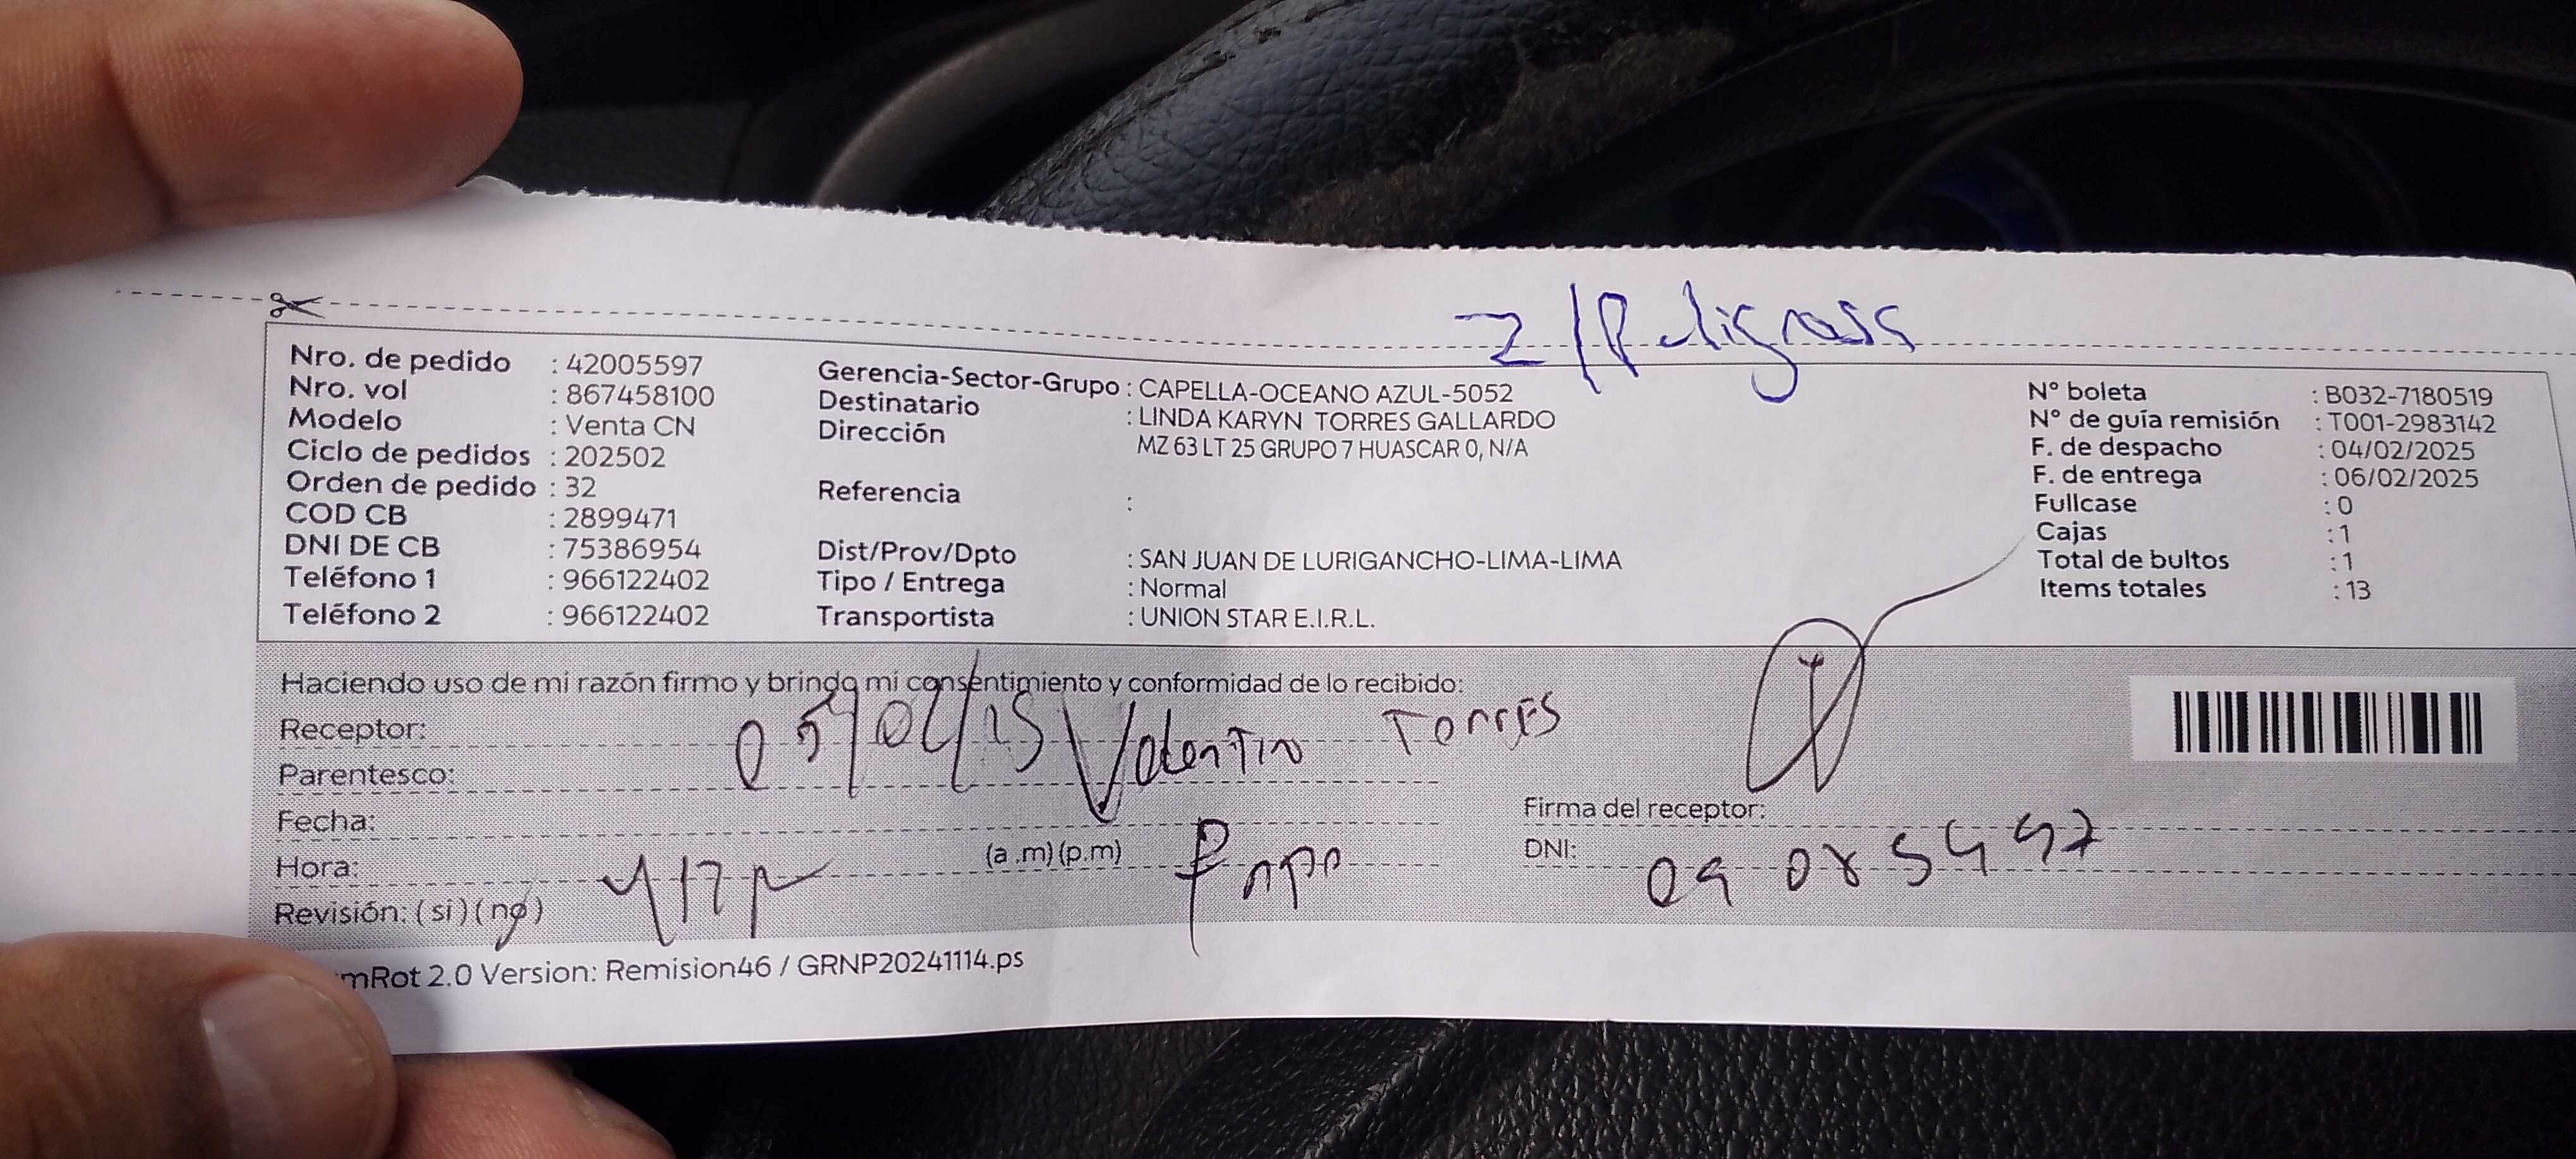 Z/Peligrosa
Nro. de pedido : 42005597
Nro. vol : 867458100
Modelo : Venta CN
Ciclo de pedidos : 202502
Orden de pedido : 32
COD CB : 2899471
DNI DE CB : 75386954
Teléfono 1 : 966122402
Teléfono 2 : 966122402
Gerencia-Sector-Grupo : CAPELLA-OCEANO AZUL-5052
Destinatario : LINDA KARYN TORRES GALLARDO
Dirección MZ 63 LT 25 GRUPO 7 HUASCAR 0, N/A
Referencia :
Dist/Prov/Dpto : SAN JUAN DE LURIGANCHO-LIMA-LIMA
Tipo / Entrega : Normal
Transportista : UNION STAR E.I.R.L.
N° boleta : B032-7180519
N° de guía remisión : T001-2983142
F. de despacho : 04/02/2025
F. de entrega : 06/02/2025
Fullcase : 0
Cajas : 1
Total de bultos : 1
Items totales : 13
Haciendo uso de mi razón firmo y brindo mi consentimiento y conformidad de lo recibido:
Receptor: Valentin Torres
Parentesco:
Fecha:
Hora: (a .m) (p.m)
Revisión: (si) (no)
Firma del receptor:
DNI:
mRot 2.0 Version: Remision46 / GRNP20241114.ps